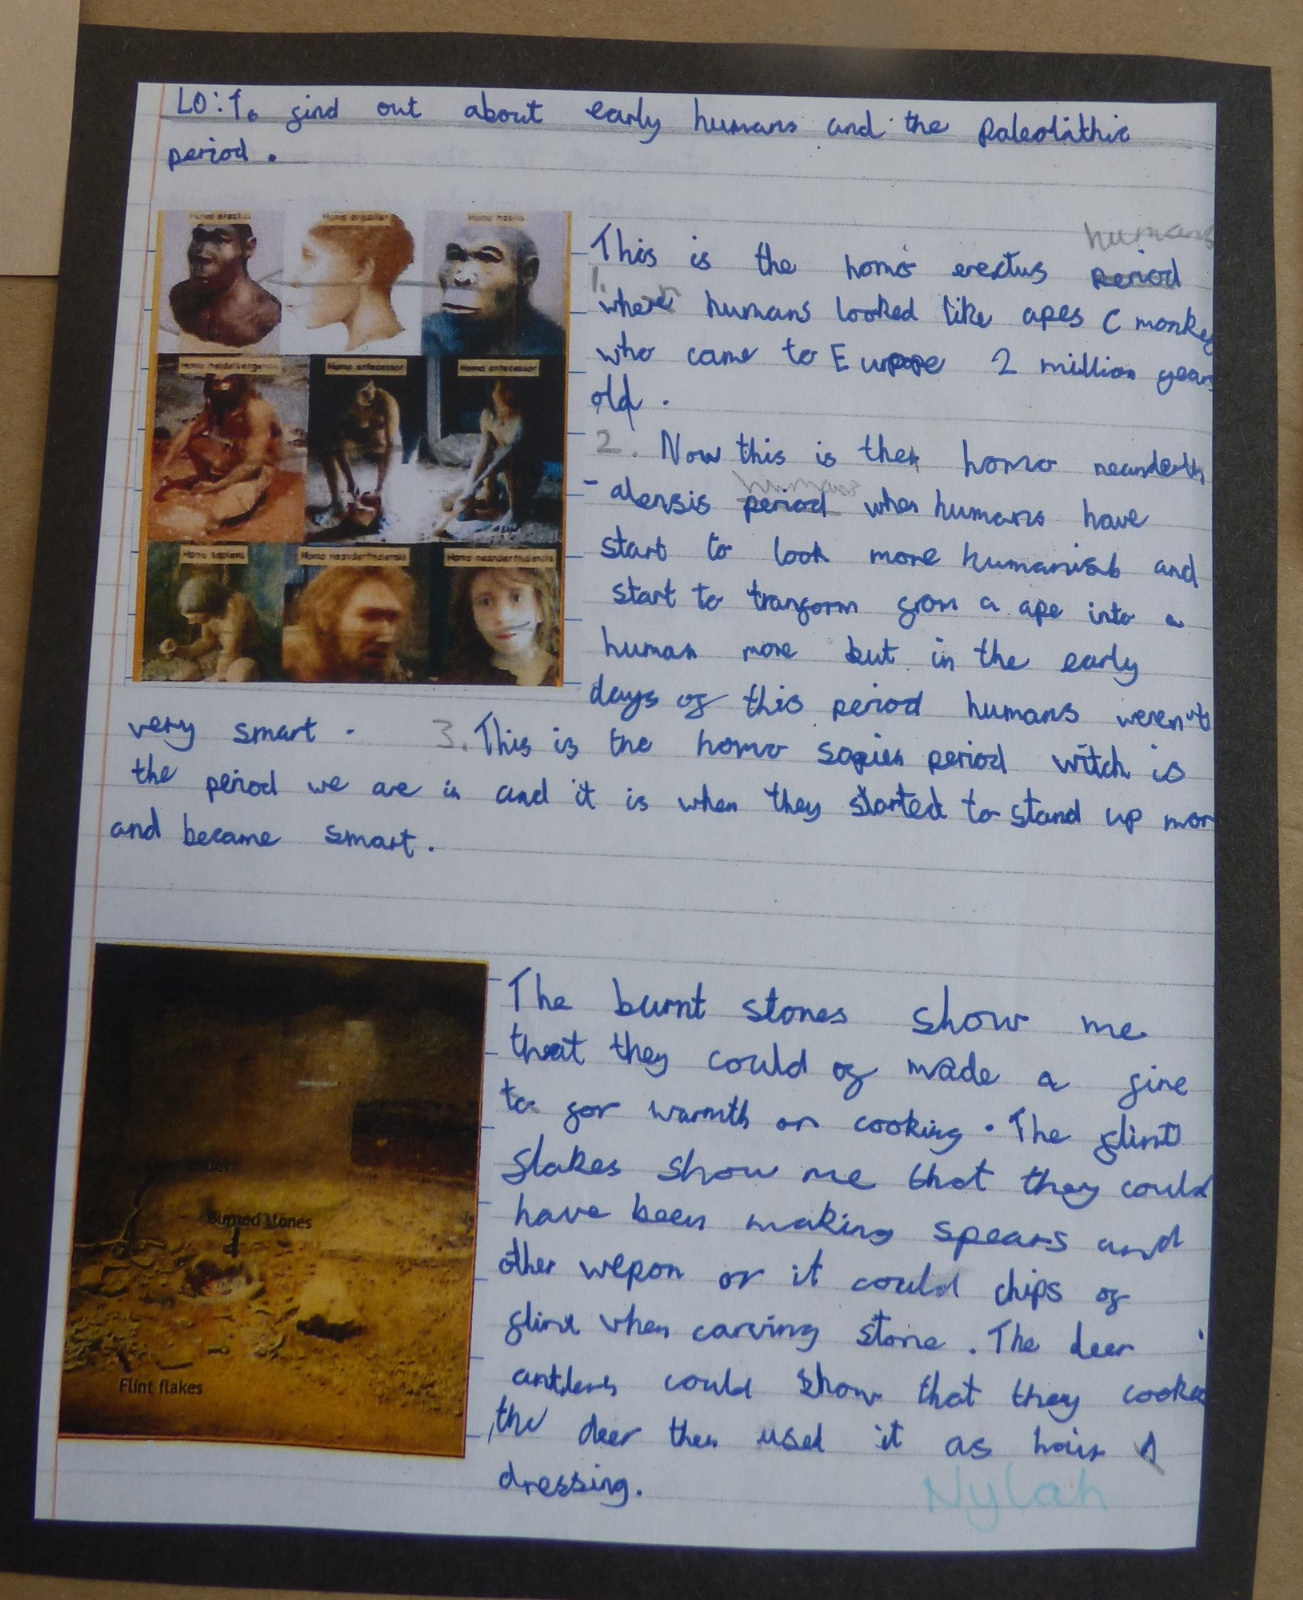 LO: To find out about early humans and the Paleolithic
period.
Homo erectus Homo ergaster Homo habilis
Homo heidelbergensis Homo antecessor Homo antecessor
Homo sapiens Homo neanderthalensis Homo neanderthalensis
humans
This is the homo erectus period
1. where humans looked like apes (monkey
who came to Europe 2 million years
old.
2. Now this is then homo neanderth
humans
-alensis period when humans have
start to look more humanish and
start to transform from a ape into a
human more but in the early
days of this period humans weren't
very smart. 3. This is the homo sapien period witch is
the period we are in and it is when they started to stand up mor
and became smart.
The burnt stones show me
that they could of made a fire
to for warmth or cooking. The flint
flakes show me that they could
have been making spears and
other wepon or it could chips of
flint when carving stone. The deer
antlers could show that they cooked
the deer then used it as hair
dressing.
Nylah
Deer antler
Burned stones
Flint flakes